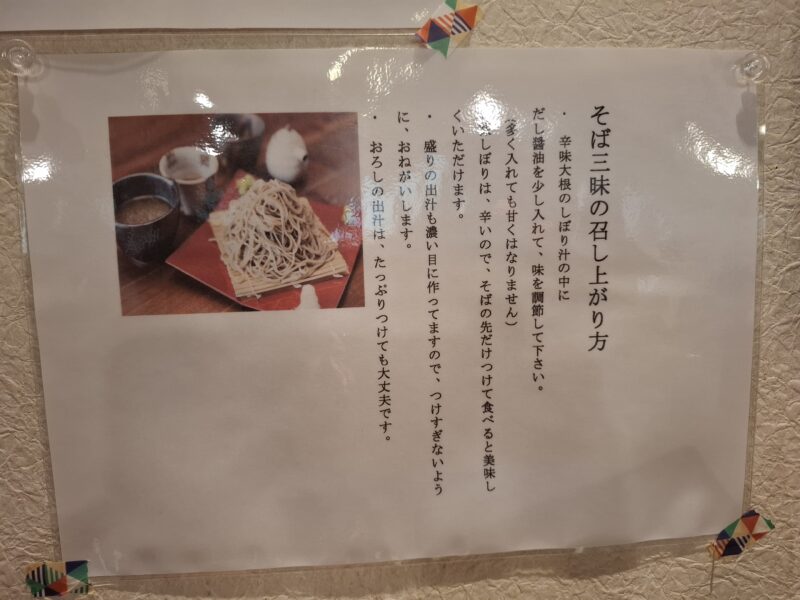 そば三昧の召し上がり方
・ 辛味大根のしぼり汁の中に
だし醤油を少し入れて、味を調節して下さい。
(多く入れても甘くはなりません)
しぼりは、辛いので、そばの先だけつけて食べると美味し
くいただけます。
・ 盛りの出汁も濃い目に作ってますので、つけすぎないよう
に、おねがいします。
・ おろしの出汁は、たっぷりつけても大丈夫です。